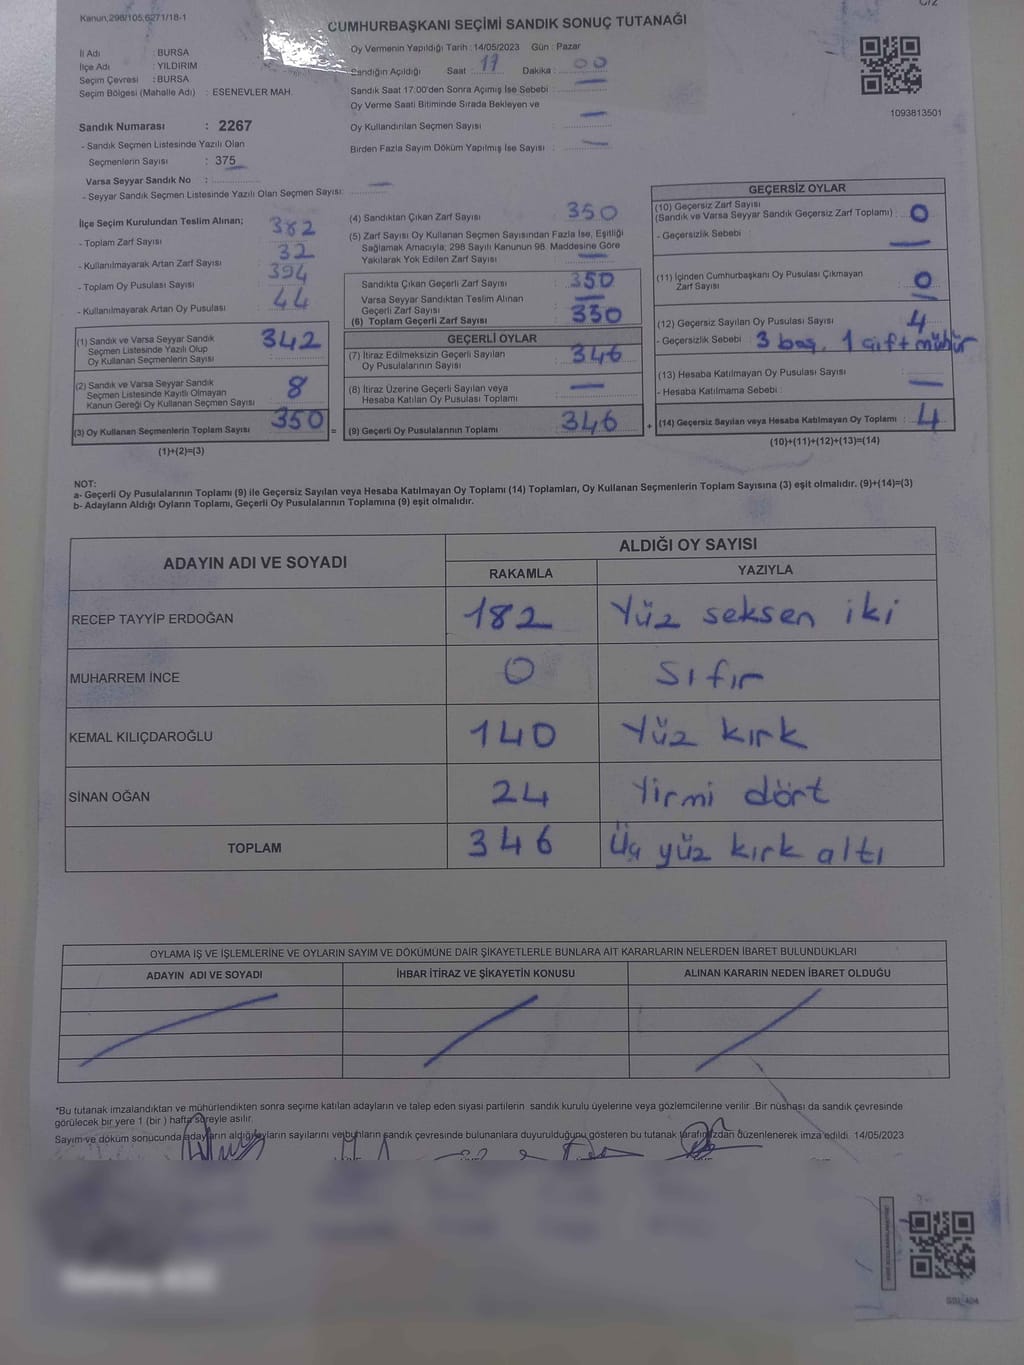 Kanun,298/105,6271/18-1
CUMHURBAŞKANI SEÇİMİ SANDIK SONUÇ TUTANAĞI
İl Adı : BURSA
İlçe Adı : YILDIRIM
Seçim Çevresi : BURSA
Seçim Bölgesi (Mahalle Adı) : ESENEVLER MAH.
Oy Vermenin Yapıldığı Tarih : 14/05/2023 Gün : Pazar
Sandığın Açıldığı Saat : 17 Dakika : 00
Sandık Saat 17:00'den Sonra Açımış İse Sebebi :
Oy Verme Saati Bitiminde Sırada Bekleyen ve
Oy Kullandırılan Seçmen Sayısı :
Birden Fazla Sayım Döküm Yapılmış İse Sayısı :
1093813501
Sandık Numarası : 2267
- Sandık Seçmen Listesinde Yazılı Olan
Seçmenlerin Sayısı : 375
Varsa Seyyar Sandık No :
- Seyyar Sandık Seçmen Listesinde Yazılı Olan Seçmen Sayısı:
İlçe Seçim Kurulundan Teslim Alınan;
- Toplam Zarf Sayısı : 382
- Kullanılmayarak Artan Zarf Sayısı : 32
- Toplam Oy Pusulası Sayısı : 394
- Kullanılmayarak Artan Oy Pusulası : 44
(1) Sandık ve Varsa Seyyar Sandık
Seçmen Listesinde Yazılı Olup
Oy Kullanan Seçmenlerin Sayısı : 342
(2) Sandık ve Varsa Seyyar Sandık
Seçmen Listesinde Kayıtlı Olmayan
Kanun Gereği Oy Kullanan Seçmen Sayısı : 8
(3) Oy Kullanan Seçmenlerin Toplam Sayısı : 350
(1)+(2)=(3)
=
(4) Sandıktan Çıkan Zarf Sayısı : 350
(5) Zarf Sayısı Oy Kullanan Seçmen Sayısından Fazla İse, Eşitliği
Sağlamak Amacıyla; 298 Sayılı Kanunun 98. Maddesine Göre
Yakılarak Yok Edilen Zarf Sayısı :
Sandıkta Çıkan Geçerli Zarf Sayısı : 350
Varsa Seyyar Sandıktan Teslim Alınan
Geçerli Zarf Sayısı :
(6) Toplam Geçerli Zarf Sayısı : 350
GEÇERLİ OYLAR
(7) İtiraz Edilmeksizin Geçerli Sayılan
Oy Pusulalarının Sayısı : 346
(8) İtiraz Üzerine Geçerli Sayılan veya
Hesaba Katılan Oy Pusulası Toplamı :
(9) Geçerli Oy Pusulalarının Toplamı : 346
+
GEÇERSİZ OYLAR
(10) Geçersiz Zarf Sayısı
(Sandık ve Varsa Seyyar Sandık Geçersiz Zarf Toplamı) : 0
- Geçersizlik Sebebi :
(11) İçinden Cumhurbaşkanı Oy Pusulası Çıkmayan
Zarf Sayısı : 0
(12) Geçersiz Sayılan Oy Pusulası Sayısı : 4
- Geçersizlik Sebebi : 3 boş, 1 çift mühür
(13) Hesaba Katılmayan Oy Pusulası Sayısı :
- Hesaba Katılmama Sebebi :
(14) Geçersiz Sayılan veya Hesaba Katılmayan Oy Toplamı : 4
(10)+(11)+(12)+(13)=(14)
NOT:
a- Geçerli Oy Pusulalarının Toplamı (9) ile Geçersiz Sayılan veya Hesaba Katılmayan Oy Toplamı (14) Toplamları, Oy Kullanan Seçmenlerin Toplam Sayısına (3) eşit olmalıdır. (9)+(14)=(3)
b- Adayların Aldığı Oyların Toplamı, Geçerli Oy Pusulalarının Toplamına (9) eşit olmalıdır.
ADAYIN ADI VE SOYADI
ALDIĞI OY SAYISI
RAKAMLA YAZIYLA
RECEP TAYYİP ERDOĞAN 182 Yüz seksen iki
MUHARREM İNCE 0 Sıfır
KEMAL KILIÇDAROĞLU 140 Yüz kırk
SİNAN OĞAN 24 Yirmi dört
TOPLAM 346 Üç yüz kırk altı
OYLAMA İŞ VE İŞLEMLERİNE VE OYLARIN SAYIM VE DÖKÜMÜNE DAİR ŞİKAYETLERLE BUNLARA AİT KARARLARIN NELERDEN İBARET BULUNDUKLARI
ADAYIN ADI VE SOYADI İHBAR İTİRAZ VE ŞİKAYETİN KONUSU ALINAN KARARIN NEDEN İBARET OLDUĞU
*Bu tutanak imzalandıktan ve mühürlendikten sonra seçime katılan adayların ve talep eden siyasi partilerin sandık kurulu üyelerine veya gözlemcilerine verilir .Bir nüshası da sandık çevresinde
görülecek bir yere 1 (bir ) hafta süreyle asılır.
Sayım ve döküm sonucunda adayların aldığı oyların sayılarını ve bunların sandık çevresinde bulunanlara duyurulduğunu gösteren bu tutanak tarafımızdan düzenlenerek imza edildi. 14/05/2023